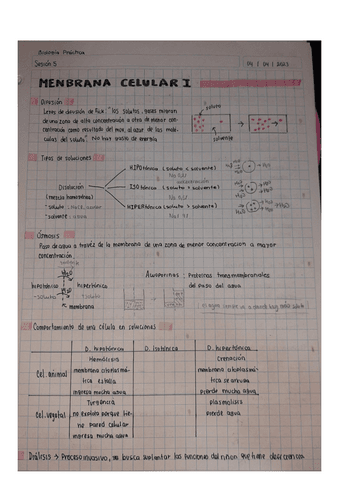 Biología Práctica
Sesión 5
04 / 04 / 2023
MENBRANA CELULAR I
Difusión
Leyes de difusión de Fick: "los solutos, gases migran
de una zona de alta concentración a otra de menor con-
centración como resultado del mov. al azar de las molé-
culas del soluto" No hay gasto de energía
soluto
solvente
Tipos de soluciones
Disolución
(mezcla homogénea)
*soluto:
*solvente: agua
HIPOtónica (soluto < solvente)
concentración
ISOtónica (soluto = solvente)
HIPERtónica (soluto > solvente)
H₂O
H₂O
H₂O
Ósmosis
Paso de agua a través de la membrana de una zona de menor concentración a mayor
concentración
H₂O
hipotónica
hipertónica
-soluto
+soluto
H₂O
membrana
Acuoporinas: Proteínas transmembranales
del paso del agua
Comportamiento de una célula en soluciones
D. hipotónica
D. isotónica
D. hipertónica
Cel. animal
Hemólisis
membrana citoplasmá-
tica estalla
ingresa mucha agua
Crenación
membrana citoplasmá-
tica se arruga
pierde mucha agua
Cel. vegetal
Turgencia
no explota porque tie-
ne pared celular
ingresa mucha agua
Plasmólisis
pierde agua
Diálisis → Proceso invasivo, busca suplantar las funciones del riñón que tiene deficiencia